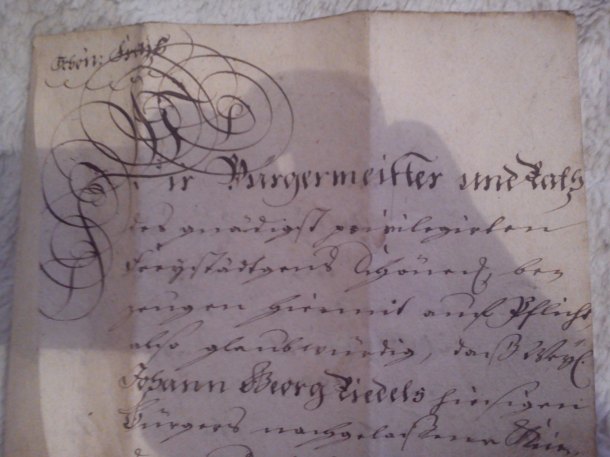 Wir Bürgermeister und Rath
des gnädigst privilegirten
Freystädtgens Schöneck, be-
zeugen hiermit auf Pflicht
also glaubwürdig, daß Weyl.
Johann Georg Riedels hiesigen
Bürgers nachgelaßene